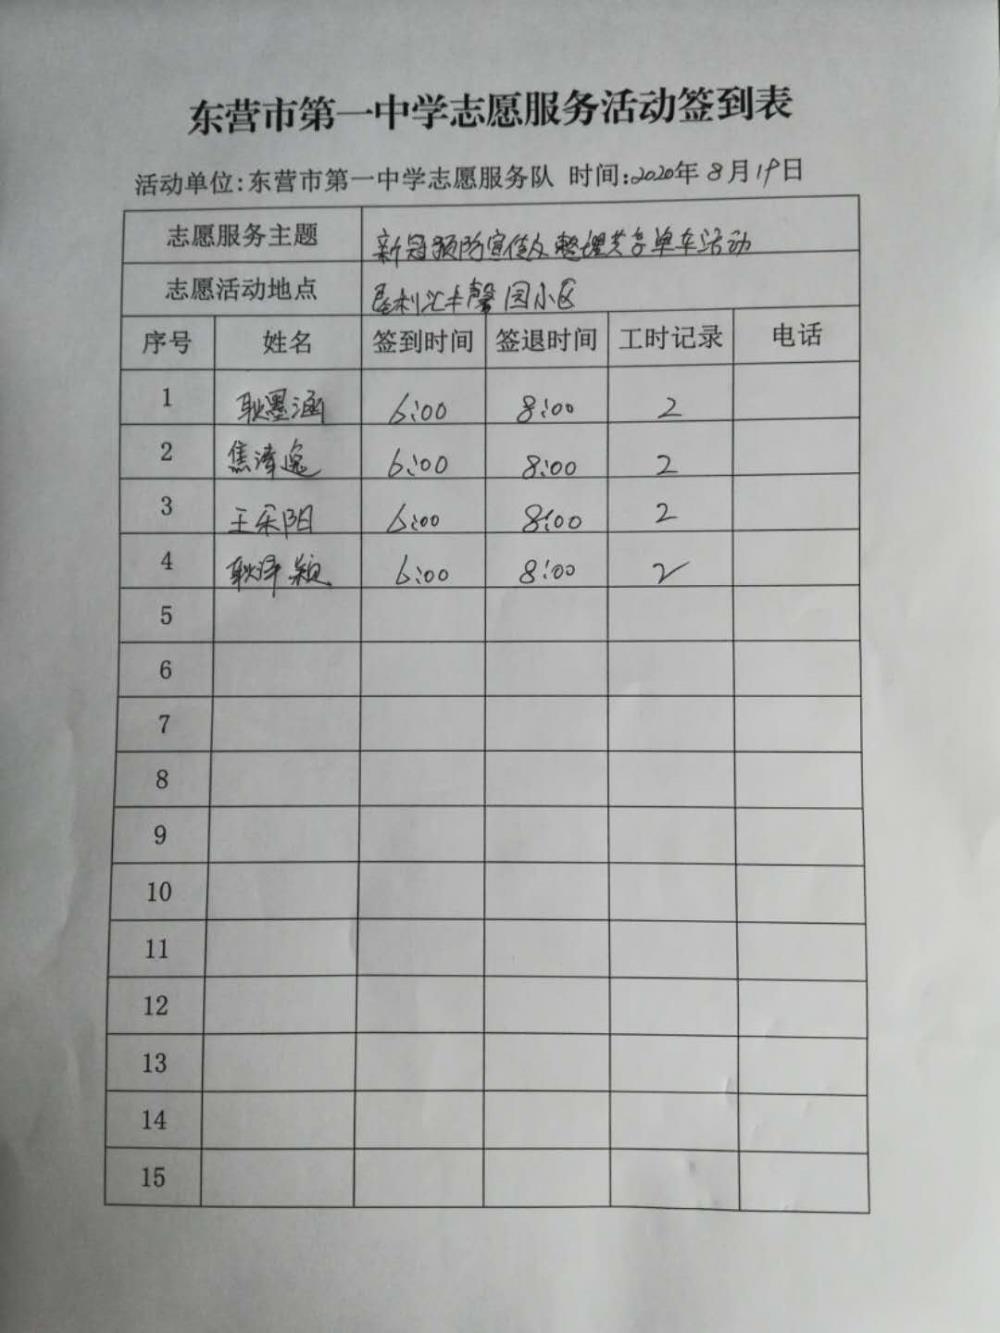 东营市第一中学志愿服务活动签到表
活动单位:东营市第一中学志愿服务队 时间:2020年8月19日
志愿服务主题 新冠预防宣传及整理共享单车活动
志愿活动地点 垦利汇丰馨园小区
序号 姓名 签到时间 签退时间 工时记录 电话
1 耿墨涵 6:00 8:00 2
2 焦清逸 6:00 8:00 2
3 王采阳 6:00 8:00 2
4 耿泽颖 6:00 8:00 2
5
6
7
8
9
10
11
12
13
14
15